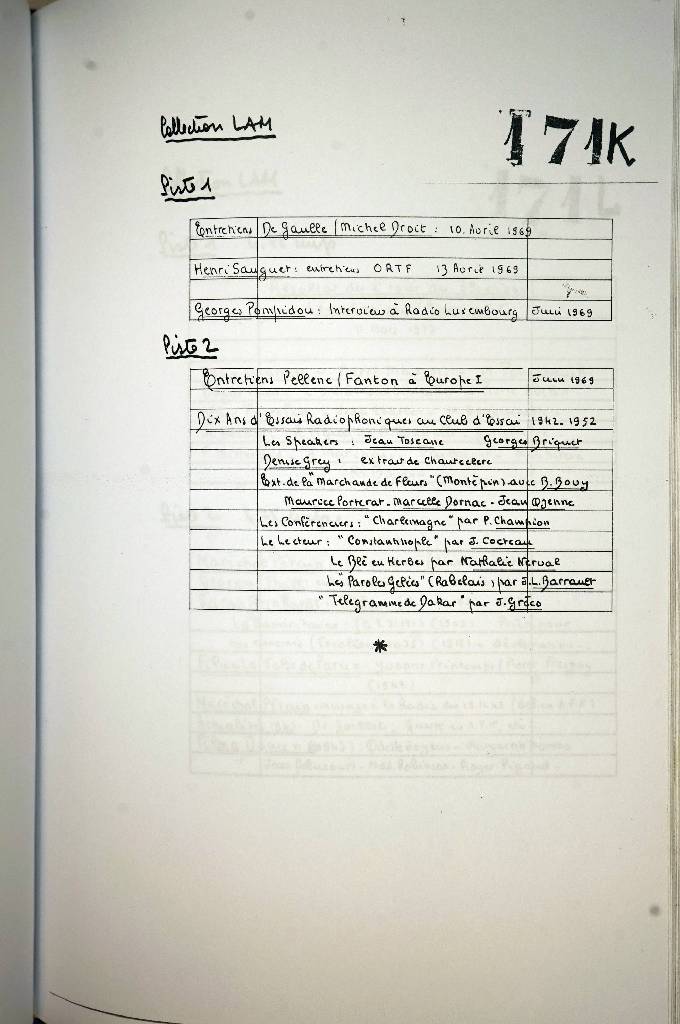 Collection LAM
171K
Piste 1
Entretiens De Gaulle / Michel Droit : 10. Avril 1969
Henri Sauguet : entretiens ORTF 13 Avril 1969
Georges Pompidou : Interview à Radio Luxembourg Juin 1969
Piste 2
Entretiens Pellenc / Fanton à Europe I Juin 1969
Dix Ans d'Essais Radiophoniques au Club d'Essai 1942-1952
Les Speakers : Jean Toscane Georges Briquet
Denise Grey : extrait de Chanteclerc
Ext. de la "Marchande de Fleurs" (Montépin) avec B. Bovy
Maurice Porterat - Marcelle Dornac - Jean Djenne
Les Conférenciers : "Charlemagne" par P. Champion
Le Lecteur : "Constantinople" par J. Cocteau
Le Blé en Herbes par Nathalie Nerval
Les "Paroles Gelées" (Rabelais) par J.L. Barrault
"Telegramme de Dakar" par J. Gréco
*